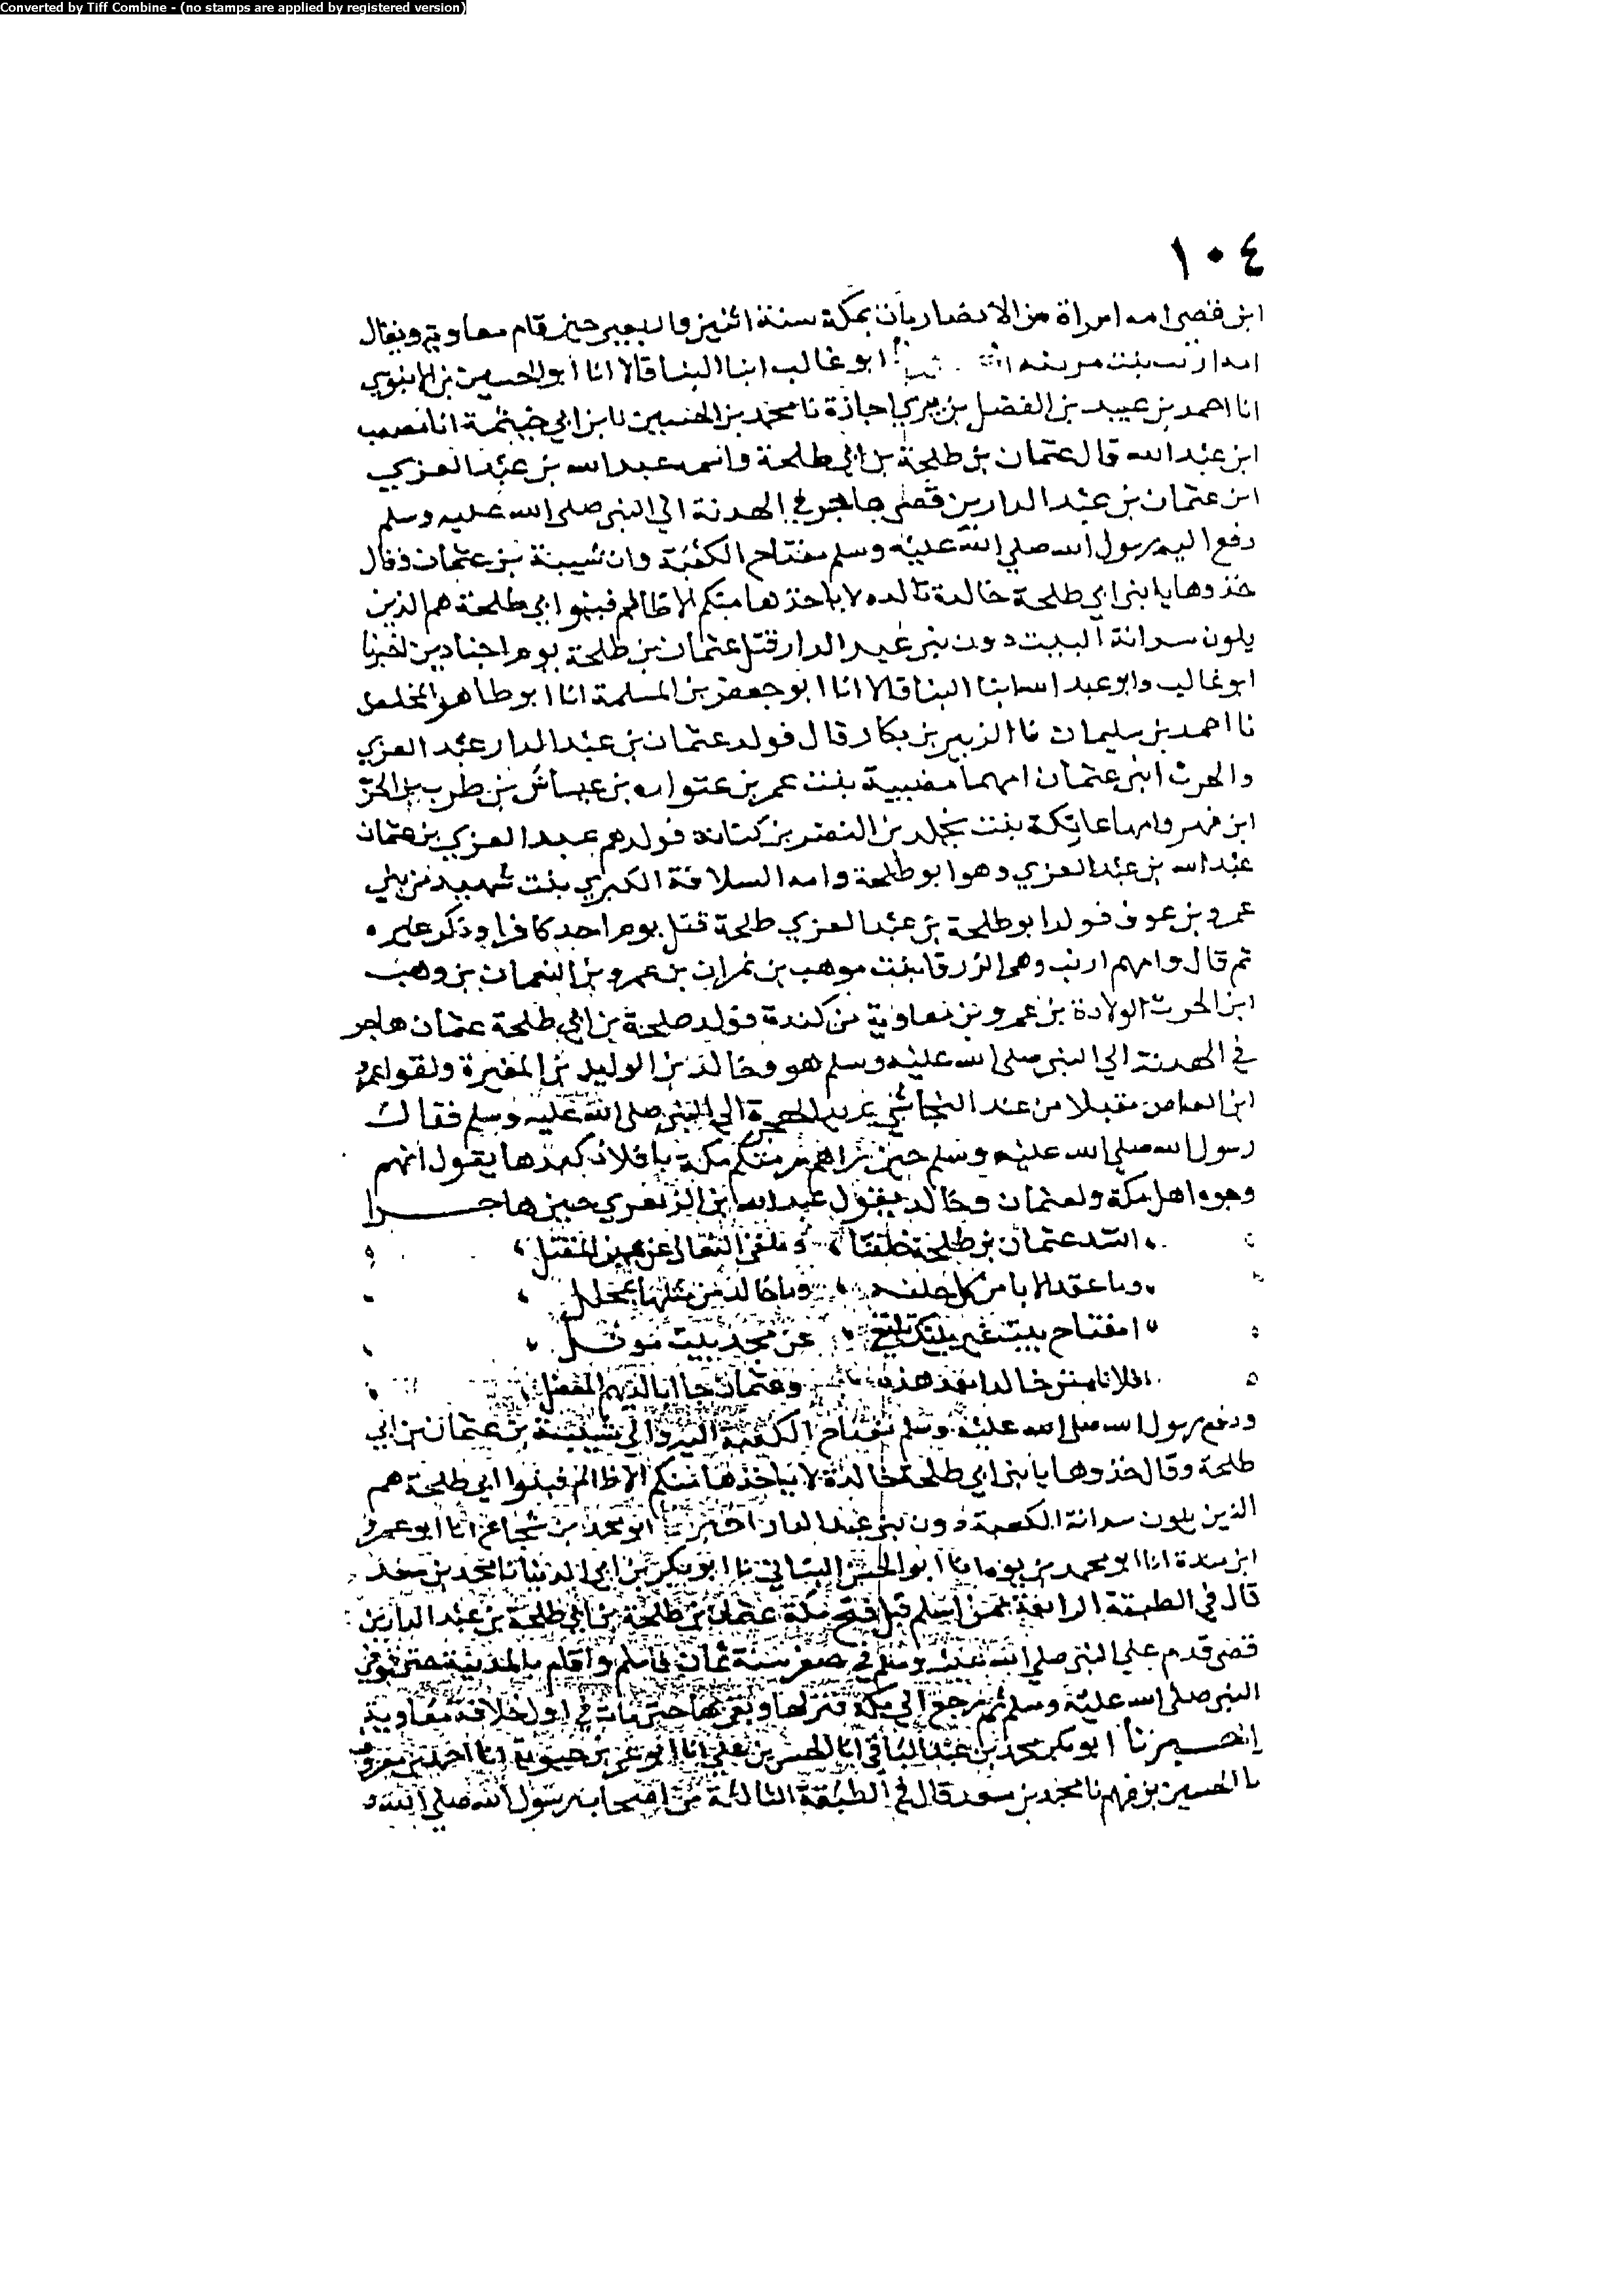 Converted by Tiff Combine - (no stamps are applied by registered version)
١٠٤
ابن قصي امه امراة من الانصار بمكة سنة اثنين واربعين حين قام معاوية ويقال
ابو غالب ابنا البنا قالا انا ابو الحسين بن الابنوي
انا احمد بن عبيد بن الفضل بن بيري اجازة نا محمد بن الحسين نا بن ابي خيثمة انا مصعب
ابن عبد الله قال عثمان بن طلحة بن ابي طلحة واسمه عبد الله بن عبد العزي
ابن عثمان بن عبد الدار بن قصي هاجر في الهدنة الي النبي صلي الله عليه وسلم
دفع اليه رسول الله صلي الله عليه وسلم مفتاح الكعبة وان شيبة بن عثمان فقال
خذوها يا بني ابي طلحة خالدة تالده لا ياخذها منكم الا ظالم فبنوا ابي طلحة هم الذين
يلون سدانة البيت دون بني عبد الدار قتل عثمان بن طلحة يوم اجنادين اخبرنا
ابو غالب وابو عبد الله ابنا البنا قالا انا ابو جعفر بن المسلمة انا ابو طاهر المخلص
نا احمد بن سليمان نا الزبير بن بكار قال فولد عثمان بن عبد الدار عبد العزي
والحرث ابني عثمان امهما هضيبة بنت عمر بن عتواره بن عباش بن طرب بن الحرث
ابن فهر وامها عاتكة بنت يخلد بن النضر بن كنانه فولدهم عبد العزي بن عثمان
عبد الله بن عبد العزي وهو ابو طلحة وامه السلافة الكبري بنت شهيد من بني
عمرو بن عوف فولد ابو طلحة بن عبد العزي طلحة قتل يوم احد كافرا وذكر غيره
ثم قال وامهم ارنب وهي الزرقا بنت موهب بن نمران بن عمرو بن النعمان بن وهب
ابن الحرث الولادة بن عمرو بن معاوية من كندة فولد طلحة بن ابي طلحة عثمان هاجر
في الهدنة الي النبي صلي الله عليه وسلم هو وخالد بن الوليد بن المغيرة ولقوا عمرو
ابن العاص مقبلا من عند النجاشي يريد الهجرة الي النبي صلي الله عليه وسلم فقال
رسول الله صلي الله عليه وسلم حين راهم رمتكم مكة بافلاذ كبدها يقول انهم
وجوه اهل مكة ولعثمان وخالد يقول عبد الله ابن الزبعري حين هاجرا
انشد عثمان بن طلحة خلفنا وملقي النعال عن يمين المقبل
وما عقد الابا من كل حلفه وما خالد من مثلها بمحلل
امفتاح بيت غير بيتك تبتغي عن مجد بيت موثل
فلا تامنن خالدا بعد هذه وعثمان جا بالدهيم المعضل
ودفع رسول الله صلي الله عليه وسلم مفتاح الكعبة اليه والي شيبة بن عثمان بن ابي
طلحة وقال خذوها يا بني ابي طلحة خالدة لا ياخذها منكم الا ظالم فبنوا ابي طلحة هم
الذين يلون سدانة الكعبة دون بني عبد الدار اخبرنا ابو محمد بن شجاع انا ابو عمرو
ابن مندة انا ابو محمد بن يوه انا ابو الحسن اللبناني نا ابو بكر بن ابي الدنيا نا محمد بن سعد
قال في الطبقة الرابعة ممن اسلم قبل فتح مكة عثمان بن طلحة بن ابي طلحة بن عبد الدار بن
قصي قدم علي النبي صلي الله عليه وسلم في صفر سنة ثمان فاسلم واقام بالمدينة حتي توفي
النبي صلي الله عليه وسلم ثم رجع الي مكة فنزلها وبقي بها حتي مات في اول خلافة معاوية
اخبرنا ابو بكر محمد بن عبد الباقي انا الحسن بن علي انا ابو عمر بن حيوية انا احمد بن معروف
نا الحسين بن فهم نا محمد بن سعد قال في الطبقة الثالثة من اصحاب رسول الله صلي الله